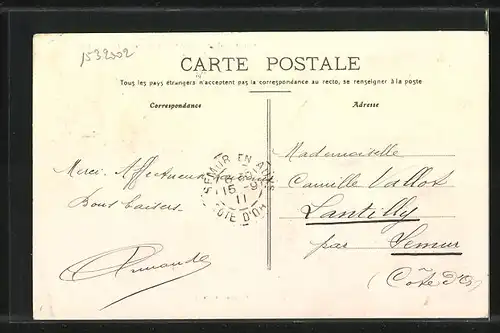 1532002
CARTE POSTALE
Tous les pays étrangers n'acceptent pas la correspondance au recto, se renseigner à la poste
Correspondance
Adresse
Merci. Affectueux
Bons baisers
Armande
SEMUR EN AUXOIS
15 -9
11
COTE D'OR
Mademoiselle
Camille Vallot
Lantilly
par Semur
(Côte d'Or)